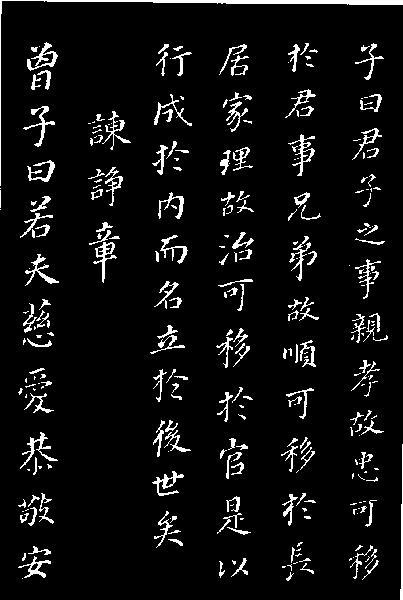 子曰君子之事親孝故忠可移
於君事兄弟故順可移於長
居家理故治可移於官是以
行成於内而名立於後世矣
諫諍章
曾子曰若夫慈愛恭敬安